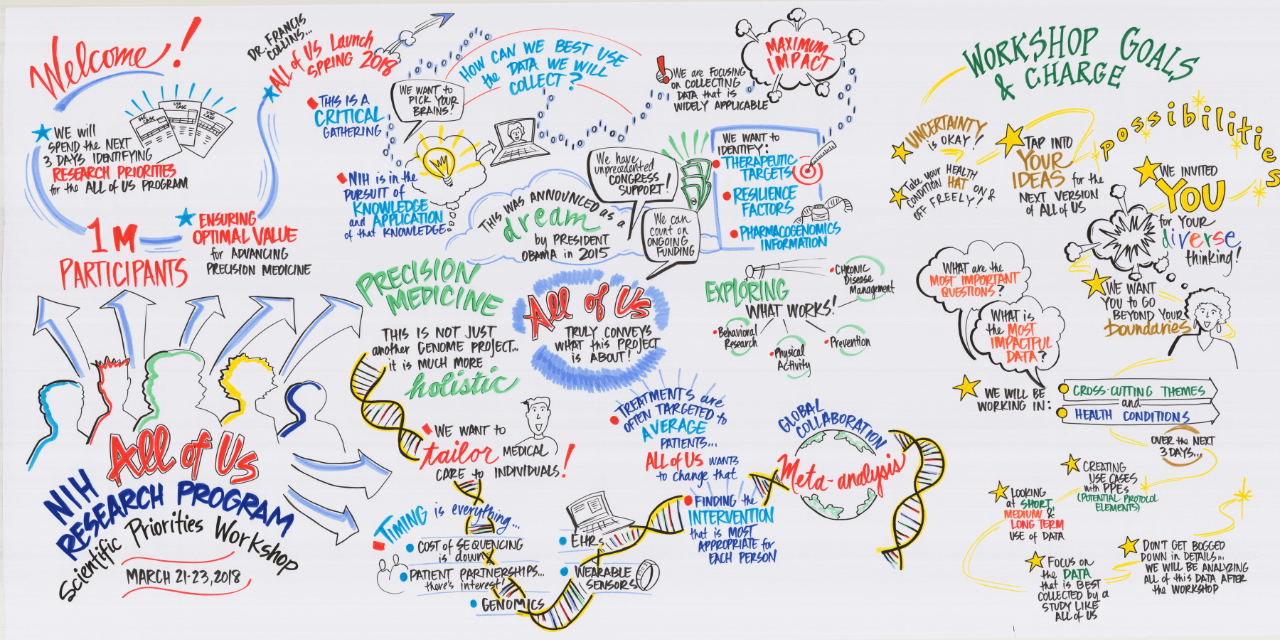 Welcome!
WE will
SPEND the NEXT
3 DAYS IDENTIFYING
RESEARCH PRIORITIES
for the ALL of US PROGRAM
USE CASE
USE CASE
USE CASE
1M
PARTICIPANTS
ENSURING
OPTIMAL VALUE
for ADVANCING
PRECISION MEDICINE
DR. FRANCIS
COLLINS...
ALL of US Launch
SPRING 2018
All of Us
NIH
RESEARCH PROGRAM
Scientific Priorities Workshop
MARCH 21-23, 2018
THIS IS A
CRITICAL
GATHERING
WE WANT to
PICK YOUR
BRAINS!
NIH is in the
PURSUIT of
KNOWLEDGE
and APPLICATION
of that KNOWLEDGE
HOW CAN WE BEST USE
the DATA WE WILL
COLLECT?
WE are FOCUSING
on COLLECTING
DATA that is
WIDELY APPLICABLE
MAXIMUM
IMPACT
THIS WAS ANNOUNCED as a
dream
by PRESIDENT
OBAMA in 2015
We have
unprecedented
CONGRESS
SUPPORT!
We can
count on
ONGOING
FUNDING
WE WANT to
IDENTIFY:
THERAPEUTIC
TARGETS
RESILIENCE
FACTORS
PHARMACOGENOMICS
INFORMATION
PRECISION
MEDICINE
THIS IS NOT JUST
another GENOME PROJECT...
it is MUCH MORE
holistic
All of Us
TRULY CONVEYS
WHAT this PROJECT
IS ABOUT!
EXPLORING
WHAT WORKS!
CHRONIC
Disease
Management
Behavioral
Research
Physical
Activity
Prevention
WE WANT to
tailor MEDICAL
CARE to INDIVIDUALS!
TREATMENTS are
OFTEN TARGETED to
AVERAGE
PATIENTS...
ALL of US WANTS
to change that
FINDING the
INTERVENTION
that is MOST
APPROPRIATE for
EACH PERSON
GLOBAL
COLLABORATION
Meta-analysis
TIMING is everything...
COST of SEQUENCING
is down
PATIENT PARTNERSHIPS...
there's interest!
GENOMICS
EHRs
WEARABLE
SENSORS
WORKSHOP GOALS
& CHARGE
UNCERTAINTY
is OKAY!
Take your HEALTH
CONDITION HAT ON &
OFF FREELY!
TAP INTO
YOUR
IDEAS for the
NEXT VERSION
of ALL of US
possibilities
WE INVITED
YOU
for YOUR
diverse
thinking!
WE WANT
YOU to GO
BEYOND YOUR
boundaries
WHAT are the
MOST IMPORTANT
QUESTIONS?
WHAT IS
the MOST
IMPACTFUL
DATA?
WE WILL BE
WORKING IN:
CROSS-CUTTING THEMES
and
HEALTH CONDITIONS
OVER the NEXT
3 DAYS...
CREATING
USE CASES
with PPEs
(POTENTIAL PROTOCOL
ELEMENTS)
LOOKING
at SHORT,
MEDIUM &
LONG TERM
USE of DATA
FOCUS on
the DATA
that is BEST
COLLECTED by a
STUDY LIKE
ALL of US
DON'T GET BOGGED
DOWN in DETAILS...
WE WILL BE ANALYZING
ALL of this DATA AFTER
the WORKSHOP